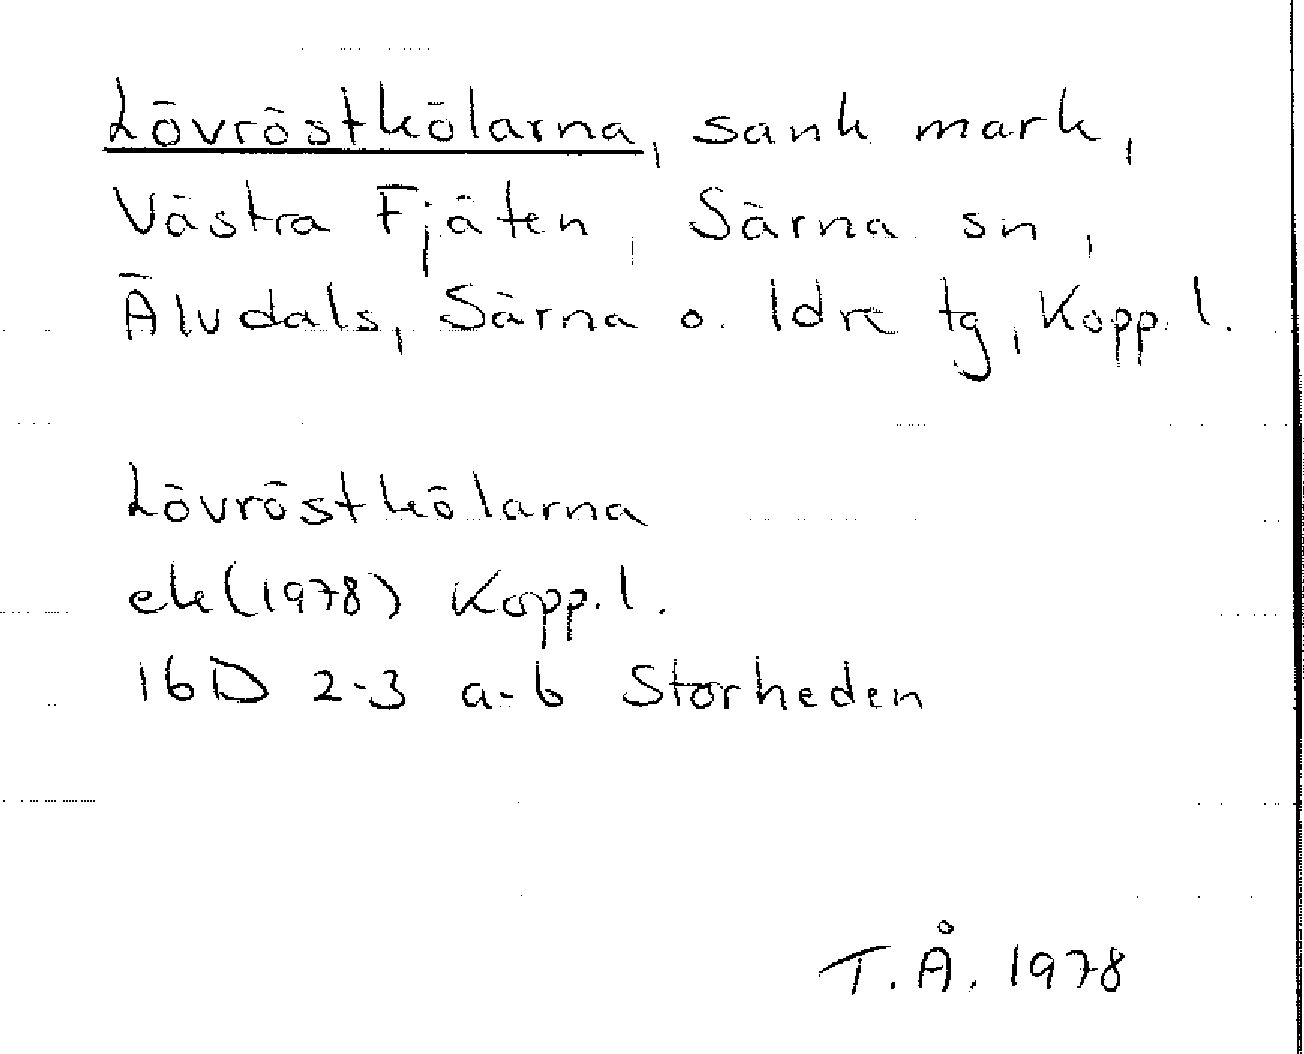 Lövröstkölarna, sank mark,
Västra Fjäten, Särna sn,
Älvdals, Särna o. Idre tg, Kopp. l.
Lövröstkölarna
ek (1978) Kopp. l.
16D 2-3 a-b Storheden
T. Å. 1978